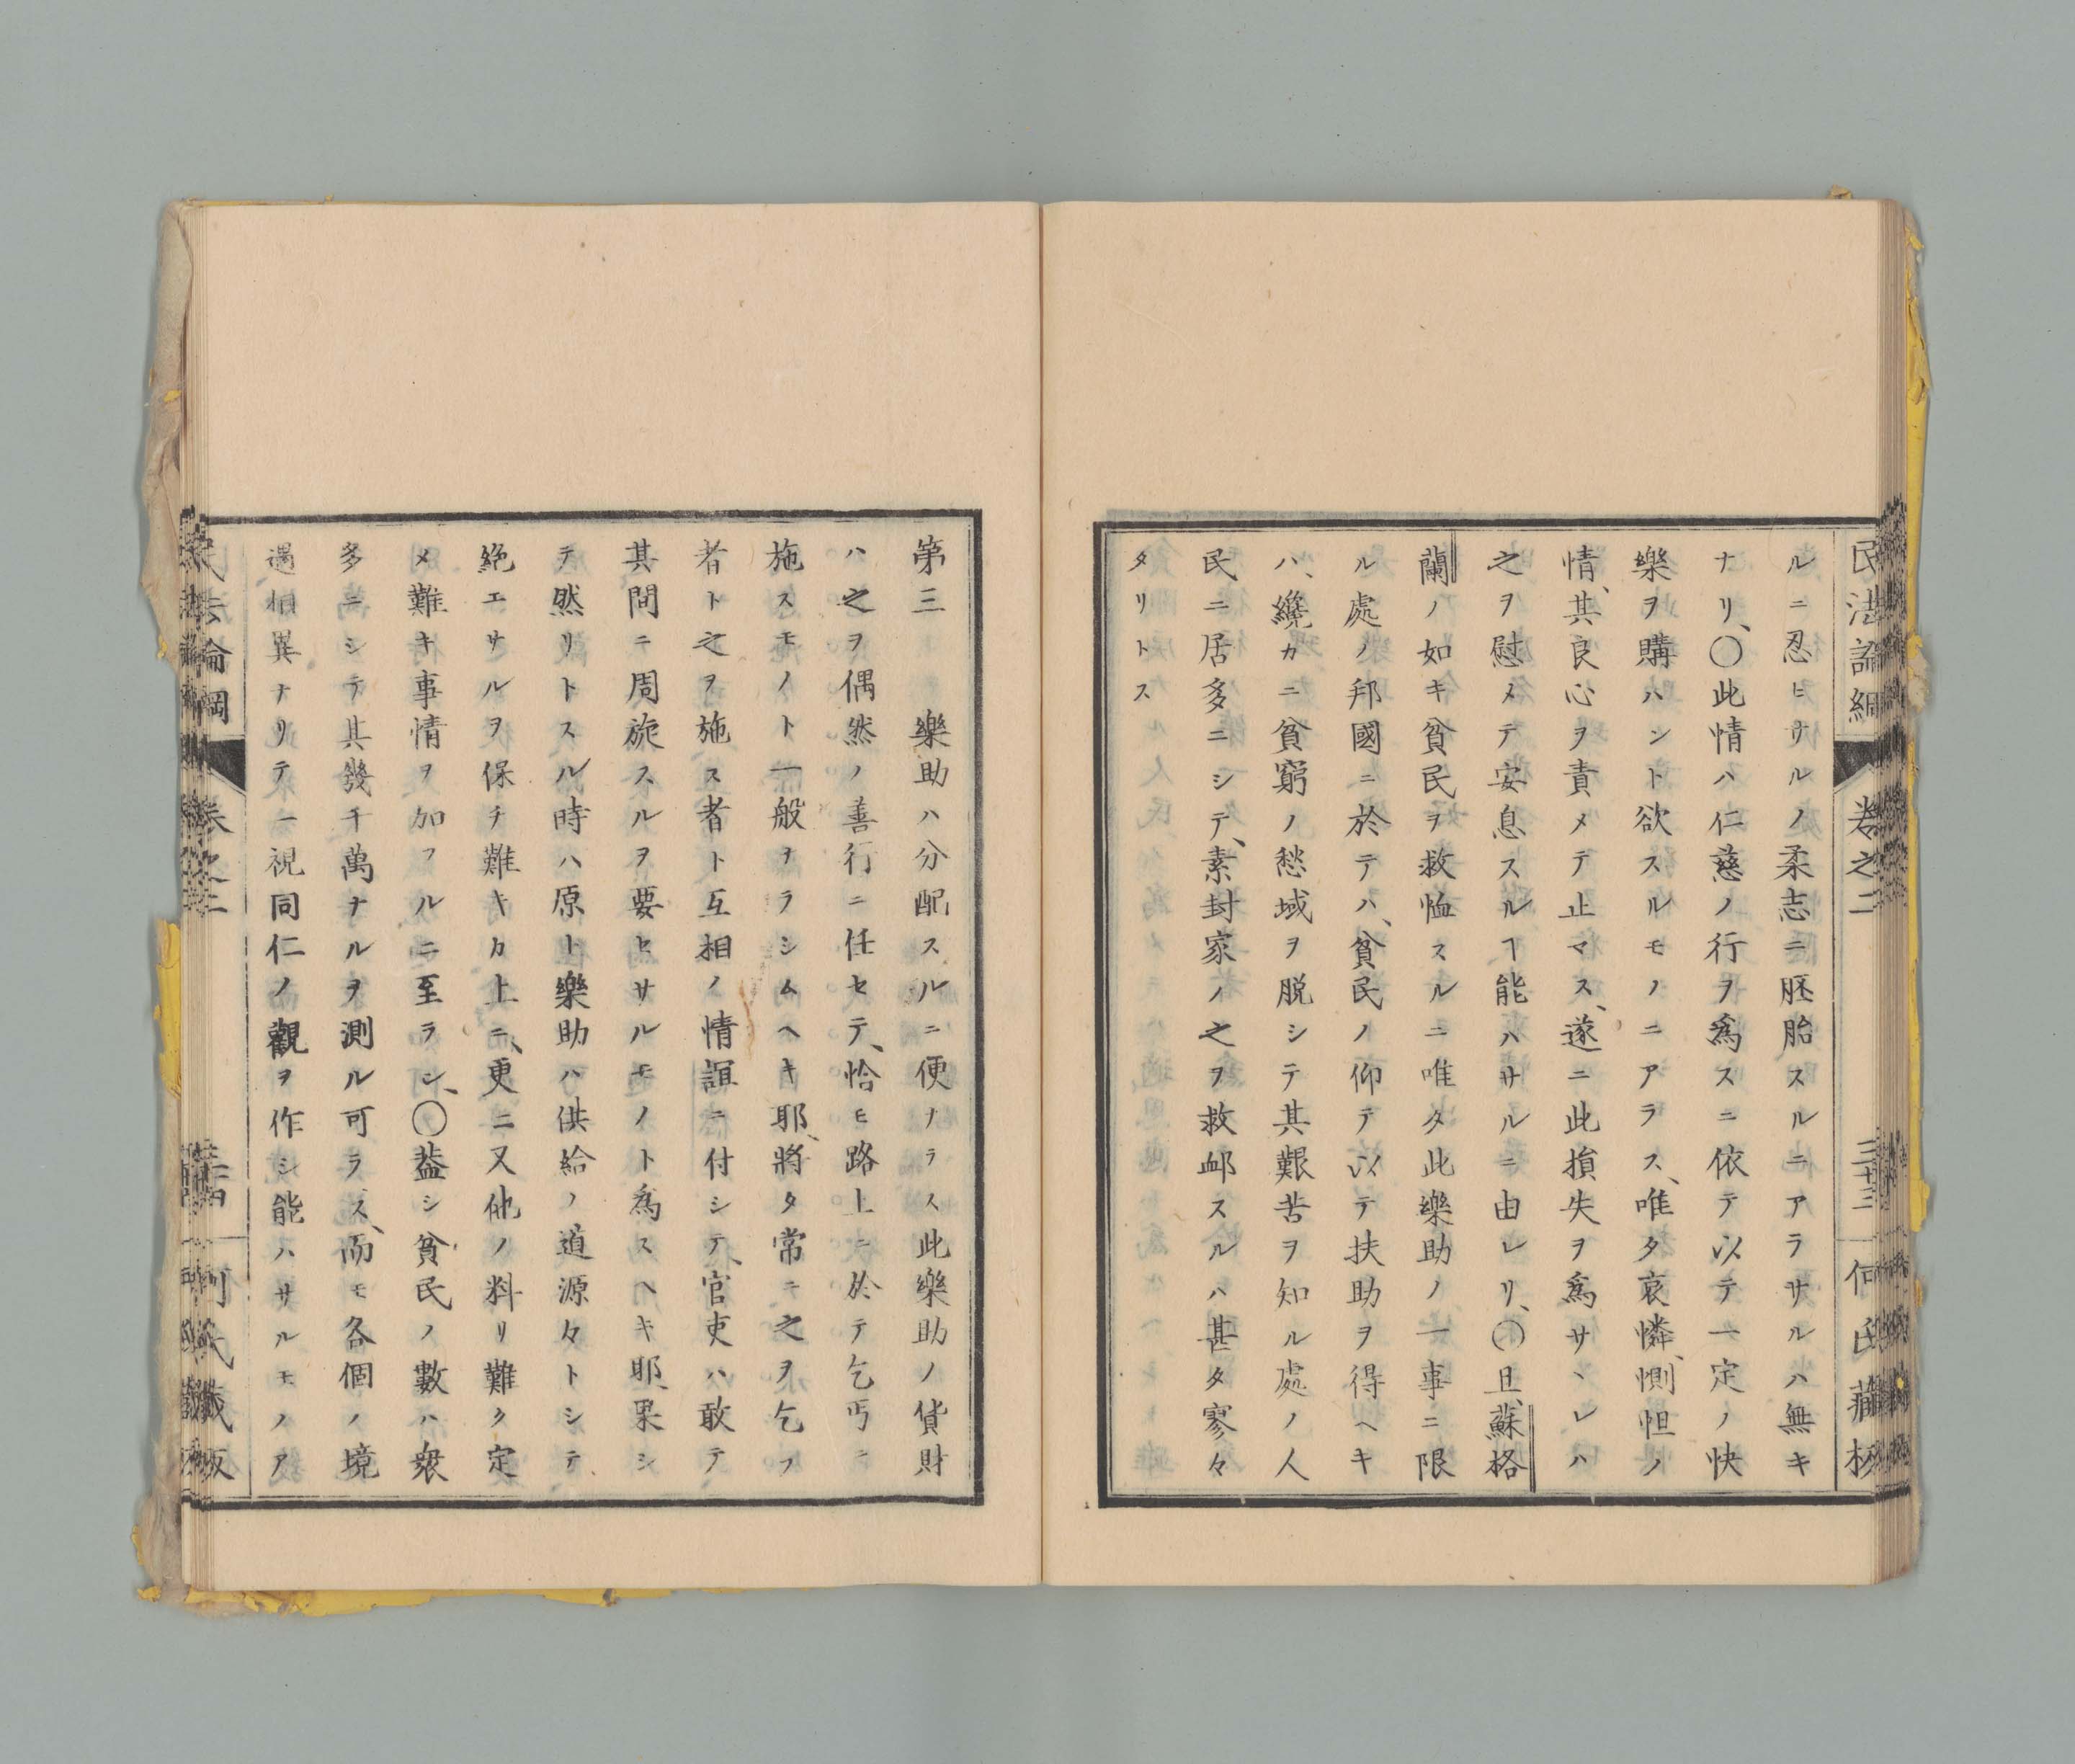 民法論綱 卷之二 三十三 何氏藏板
ルニ忍ヒサルノ柔志ニ胚胎スルニアラサルハ無キ
ナリ、〇此情ハ仁慈ノ行ヲ爲スニ依テ以テ一定ノ快
樂ヲ購ハント欲スルモノニアラス、唯タ哀憐、惻怛ノ
情、其良心ヲ責メテ止マス、遂ニ此損失ヲ爲サヽレハ
之ヲ慰メテ安息スルヿ能ハサルニ由レリ、〇且、蘇格
蘭ノ如キ貧民ヲ救恤スルニ唯タ此樂助ノ一事ニ限
ル處ノ邦國ニ於テハ、貧民ノ仰テ以テ扶助ヲ得ヘキ
ハ、纔カニ貧窮ノ愁域ヲ脱シテ其艱苦ヲ知ル處ノ人
民ニ居多ニシテ、素封家ノ之ヲ救卹スルハ甚タ寥々
タリトス
第三 樂助ハ分配スルニ便ナラス此樂助ノ貨財
ハ之ヲ偶然ノ善行ニ任セテ、恰モ路上ニ於テ乞丐ニ
施スモノト一般ナラシムヘキ耶、將タ常ニ之ヲ乞フ
者ト之ヲ施ス者ト互相ノ情誼ニ付シテ、官吏ハ敢テ
其間ニ周旋スルヲ要セサルモノト爲スヘキ耶、果シ
テ然リトスル時ハ原ト樂助ハ供給ノ道源々トシテ
絶エサルヲ保チ難キカ上ニ、更ニ又他ノ料リ難ク定
メ難キ事情ヲ加フルニ至ラシ、〇蓋シ貧民ノ數ハ衆
多ニシテ其幾千萬ナルヲ測ル可ラス、而モ各個ノ境
遇相異ナリテ一視同仁ノ觀ヲ作シ能ハサルモノア
民法論綱 卷之二 三十四 何氏藏板